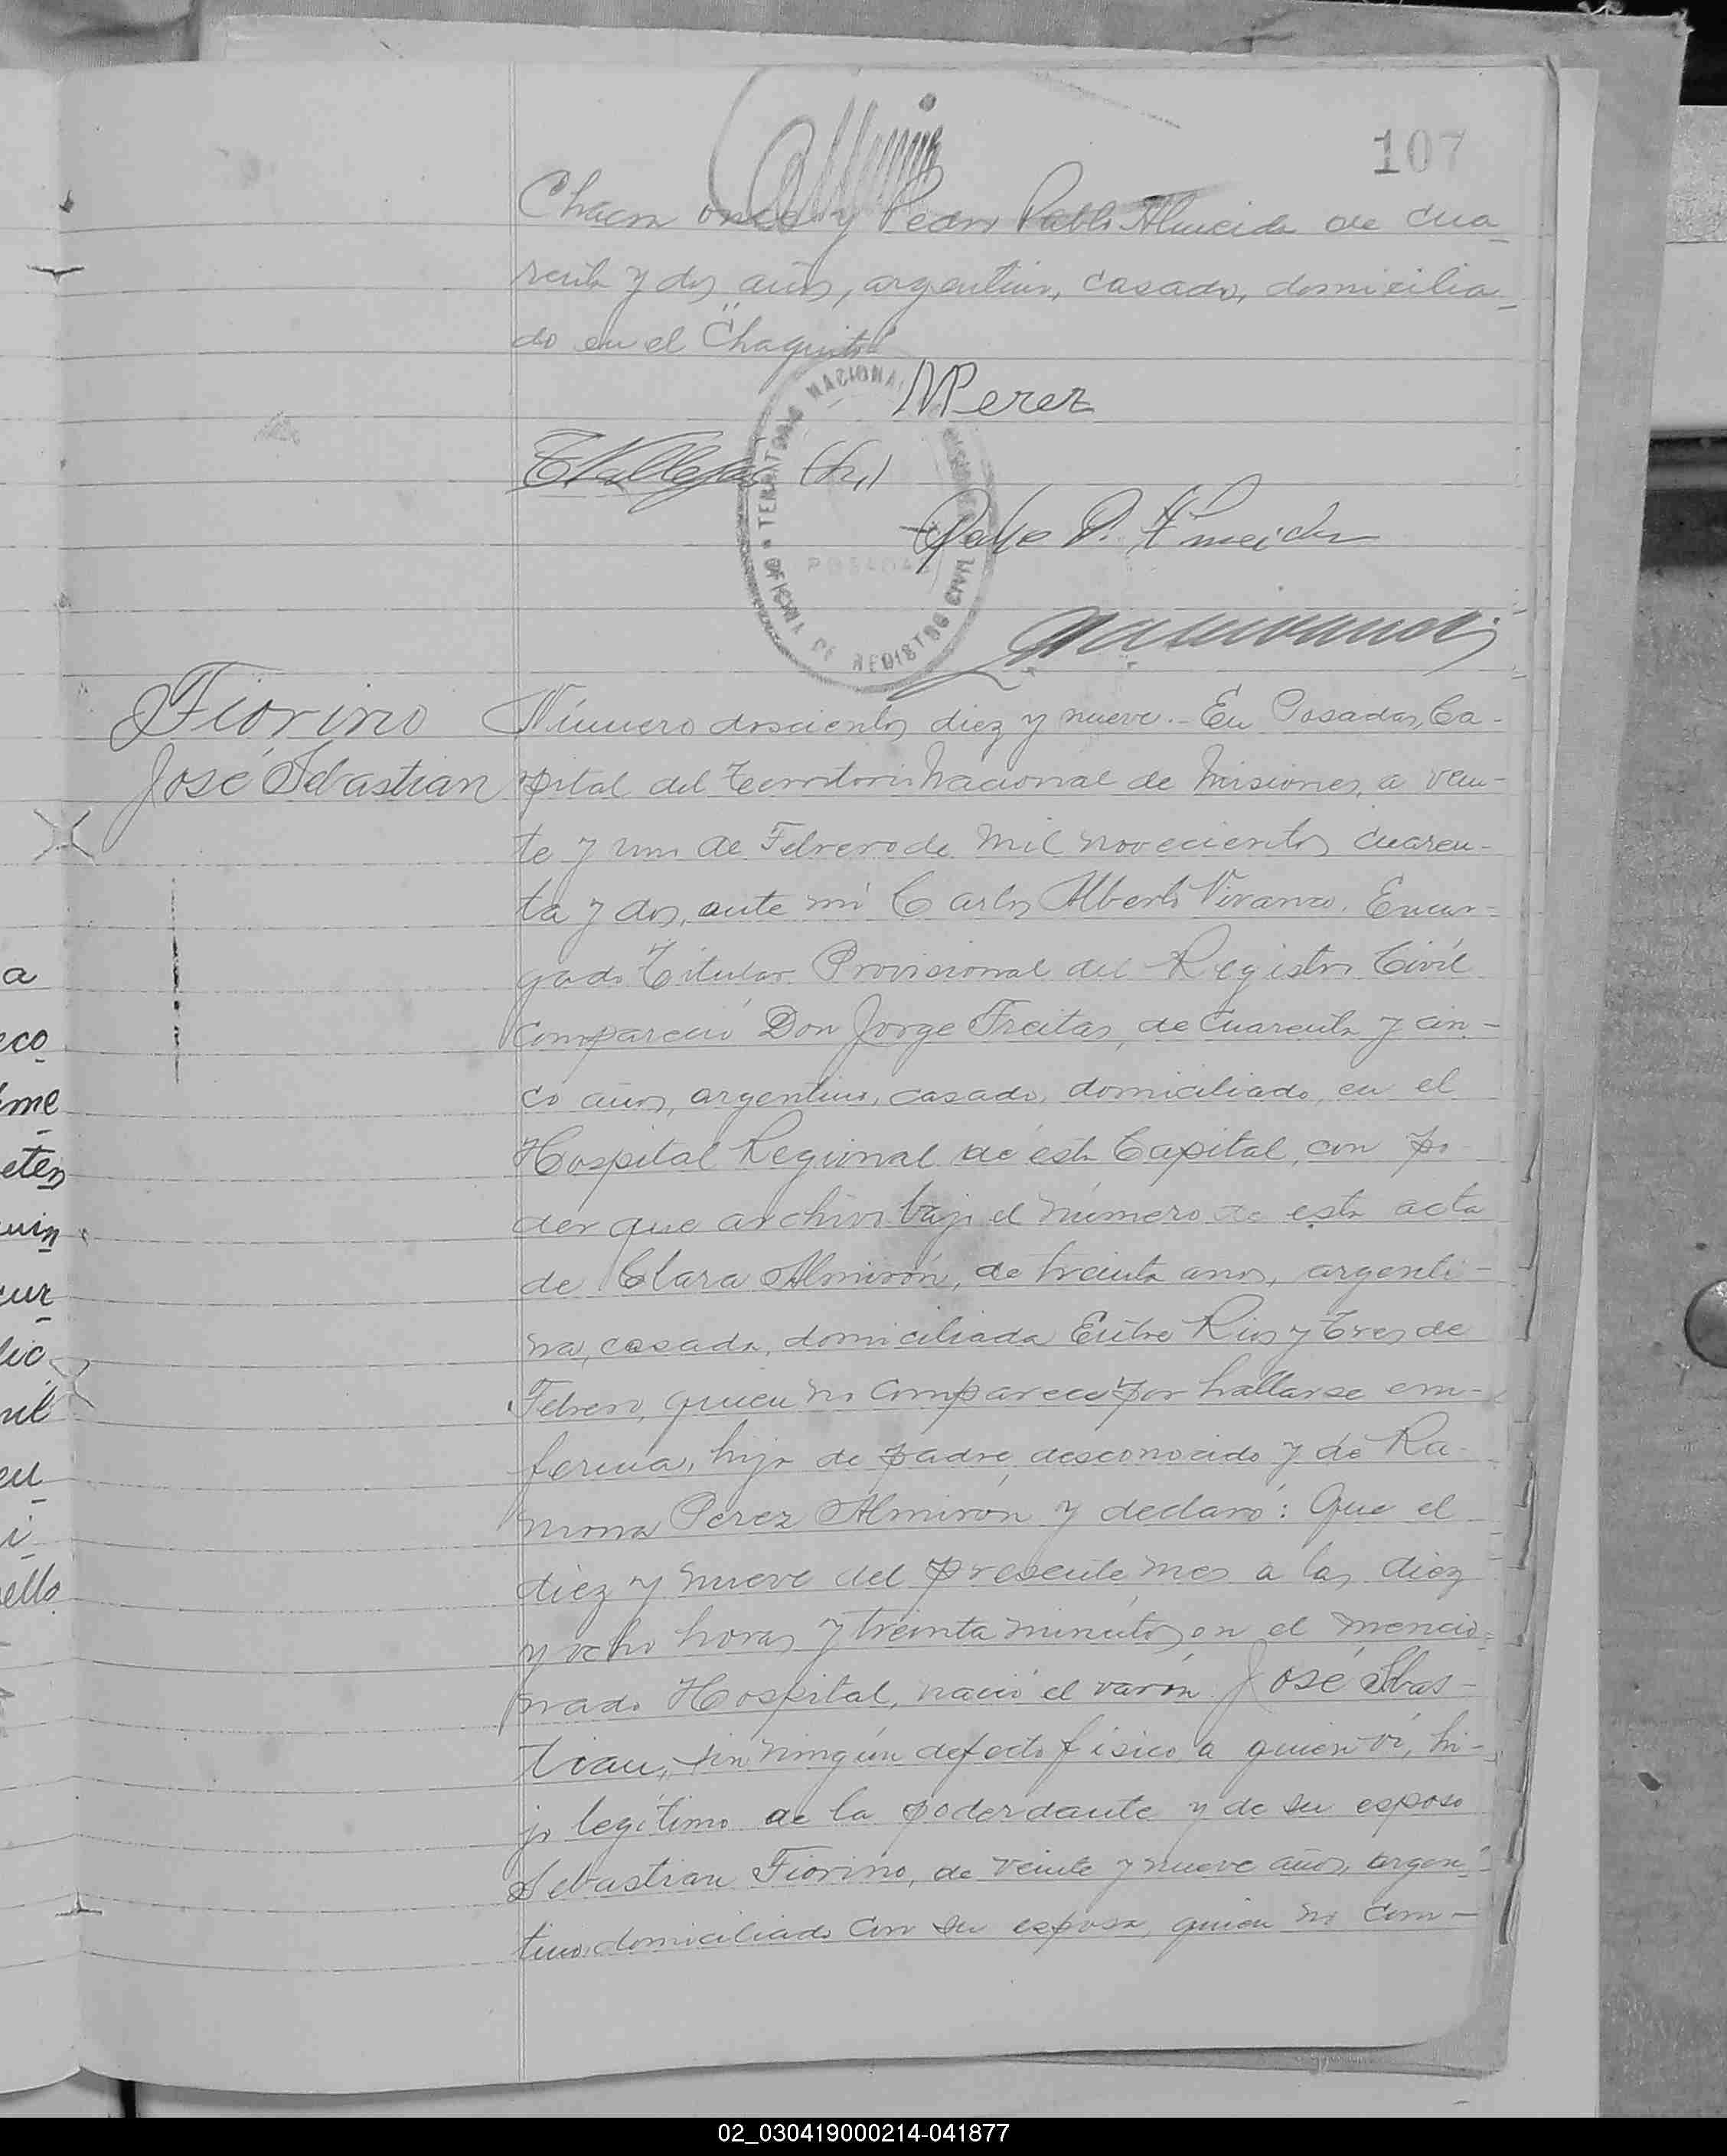 107
Chacra once y Pedro Pablo Almeida de cua-
renta y dos años, argentino, casado, domicilia-
do en el "Chaquito"
MPerez
TERRITORIOS NACIONALES MISIONES
OFICINA DE REGISTRO CIVIL
POSADAS
Vallejos (h.)
Pedro P. Almeida
Fiorino
José Sebastian
Número doscientos diez y nueve.- En Posadas, Ca-
pital del Territorio Nacional de Misiones, a vein-
te y uno de Febrero de mil novecientos cuaren-
ta y dos, ante mi Carlos Alberto Vivanco. Encar-
gado Titular Provisional del Registro Civil
compareció Don Jorge Freitas, de cuarenta y cin-
co años, argentino, casado, domiciliado en el
Hospital Regional de esta Capital, con po-
der que archivo bajo el número de esta acta
de Clara Almirón, de treinta anos, argenti-
na, casada, domiciliada Entre Rios y Tres de
Febrero, quien no comparece por hallarse en-
ferma, hija de padre desconocido y de Ra-
mona Perez Almirón y declaró: Que el
diez y nueve del presente mes a las diez
y ocho horas y treinta minutos en el mencio-
nado Hospital, nació el varón José Sebas-
tian, sin ningún defecto fisico a quien ví, hi-
jo legítimo de la poderdante y de su esposo
Sebastian Fiorino, de veinte y nueve años, argen-
tino domiciliado con su esposa, quien no com-
a
eco
me
eten
uin
cur
lic
nil
eu
i
ello
02_030419000214-041877